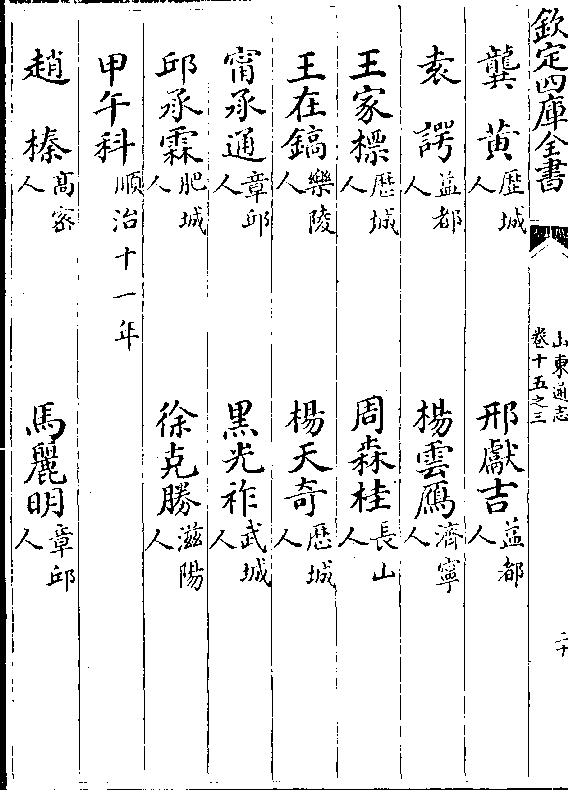 欽定四庫全書
山東通志
卷十五之三
二十
龔黄歴城人 邢獻吉益都人
袁諤益都人 楊雲鴈濟寧人
王家標歴城人 周森桂長山人
王在鎬樂陵人 楊天奇歴城人
甯承通章邱人 黒光祚武城人
邱承霖肥城人 徐克勝滋陽人
甲午科順治十一年
趙榛高密人 馬麗明章邱人